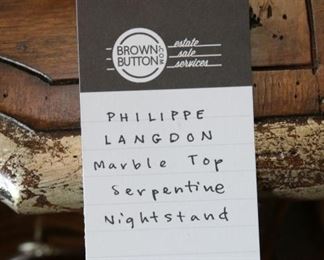 BROWN
BUTTON
.COM
estate
sale
services
PHILIPPE
LANGDON
Marble Top
Serpentine
Nightstand